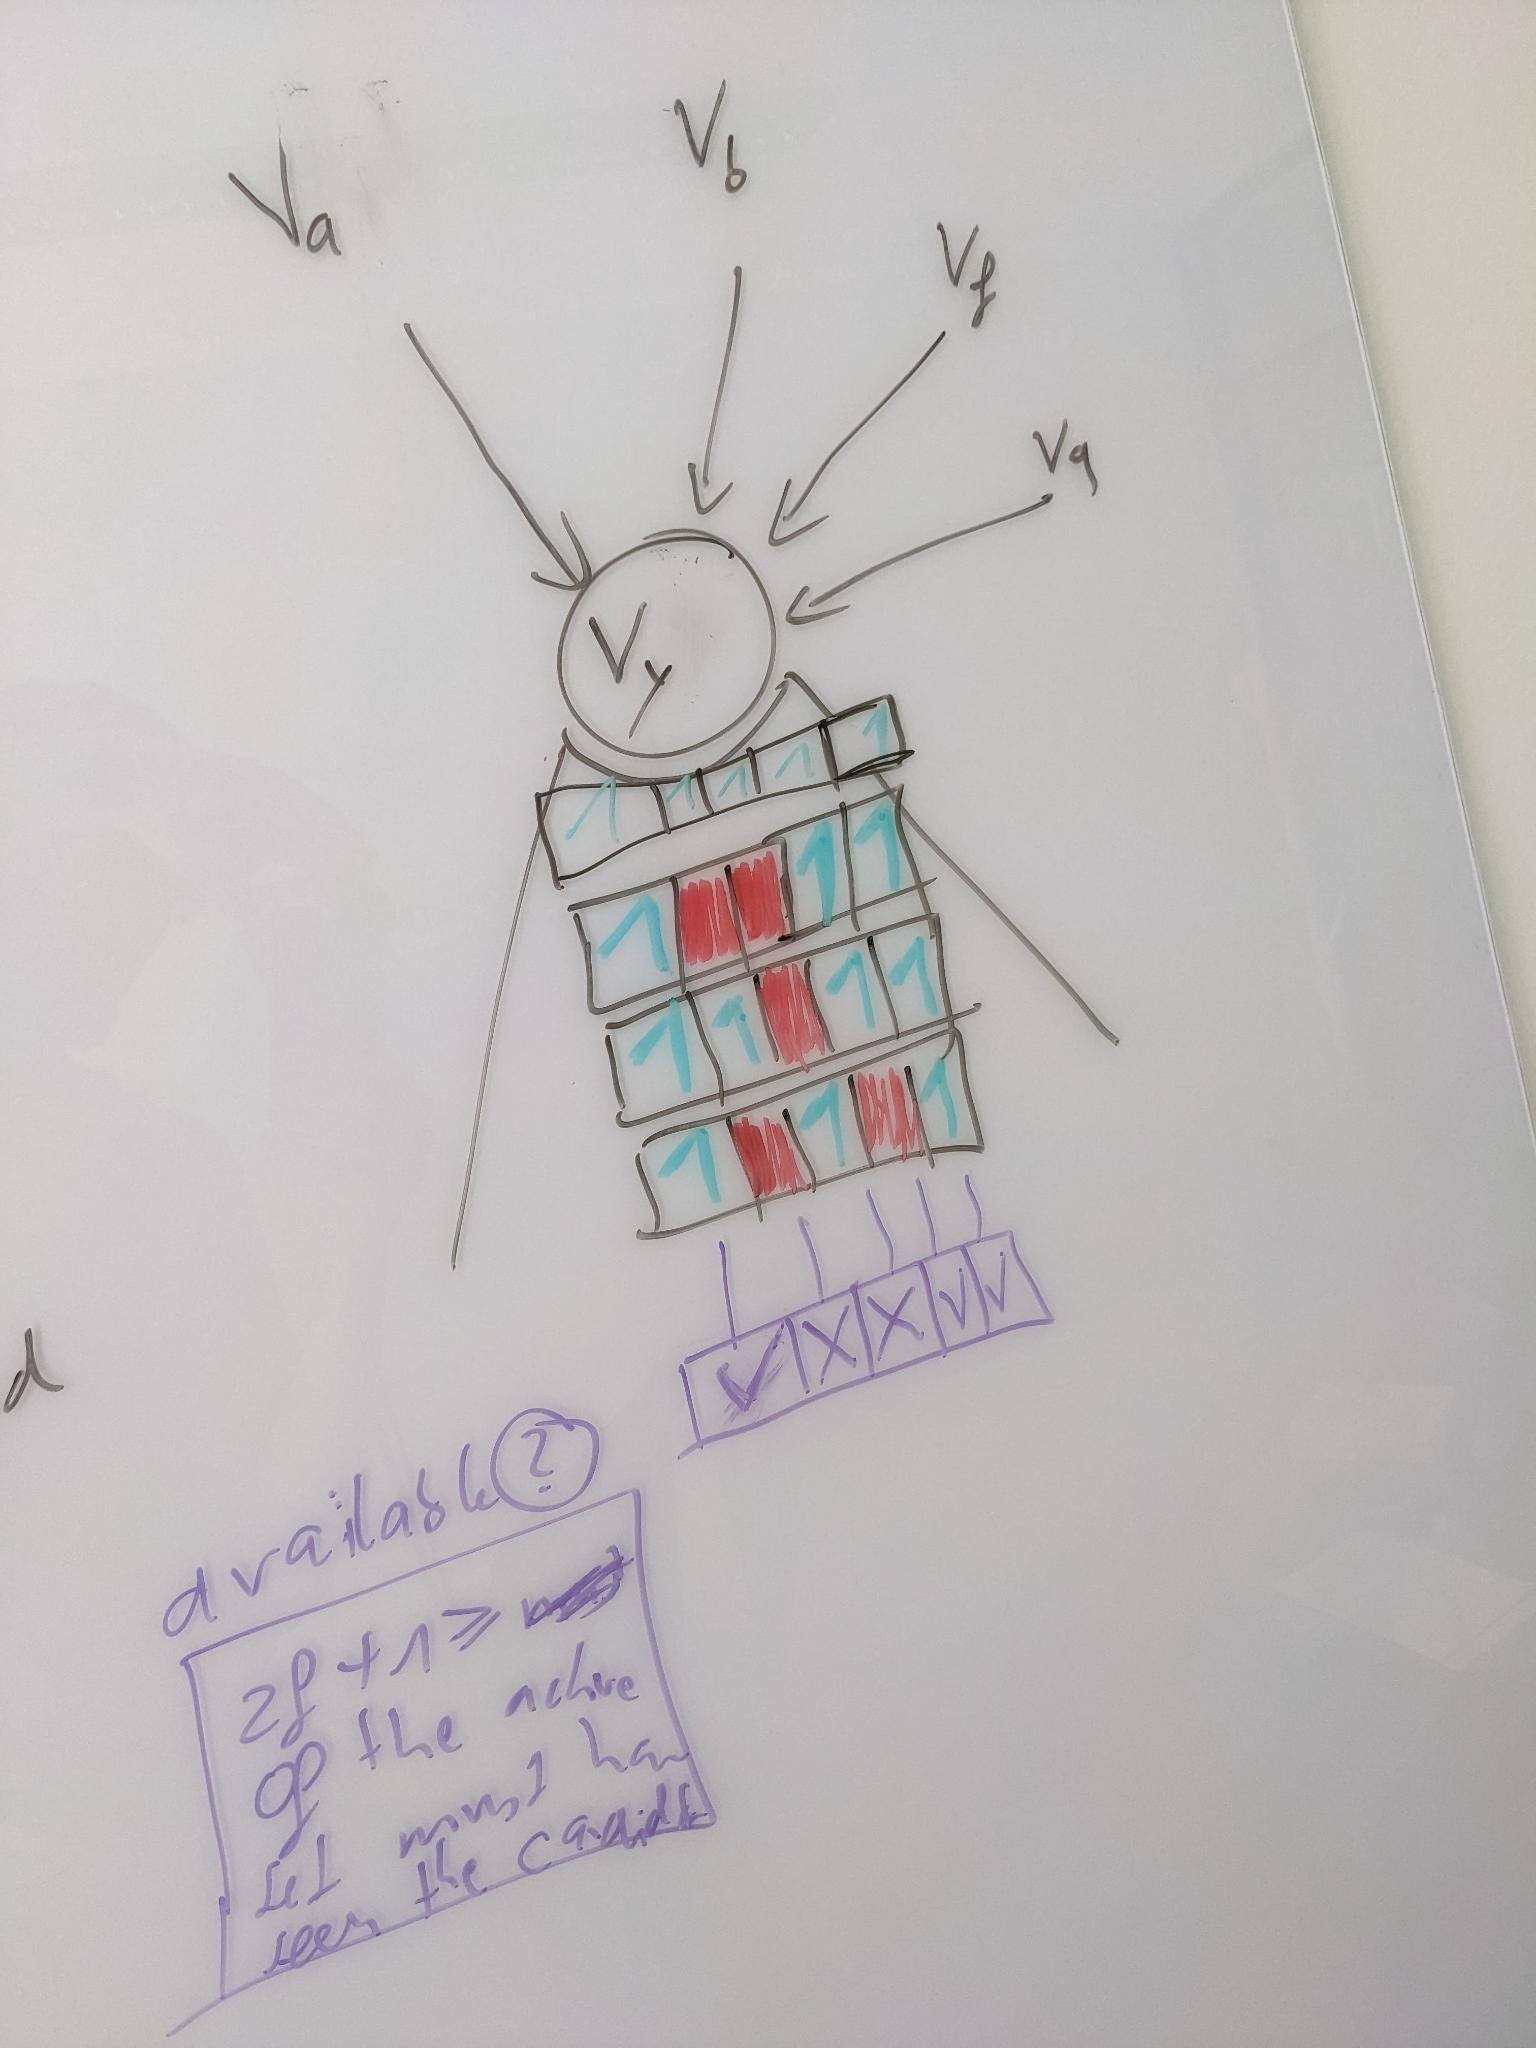 Va
Vb
Vf
Vq
Vy
1 1 1 1 1
1 1 1
1 1 1 1
1 1 1
✓ X X ✓ ✓
d
available ?
2f + 1 ≥
of the active
set must have
seen the candidate